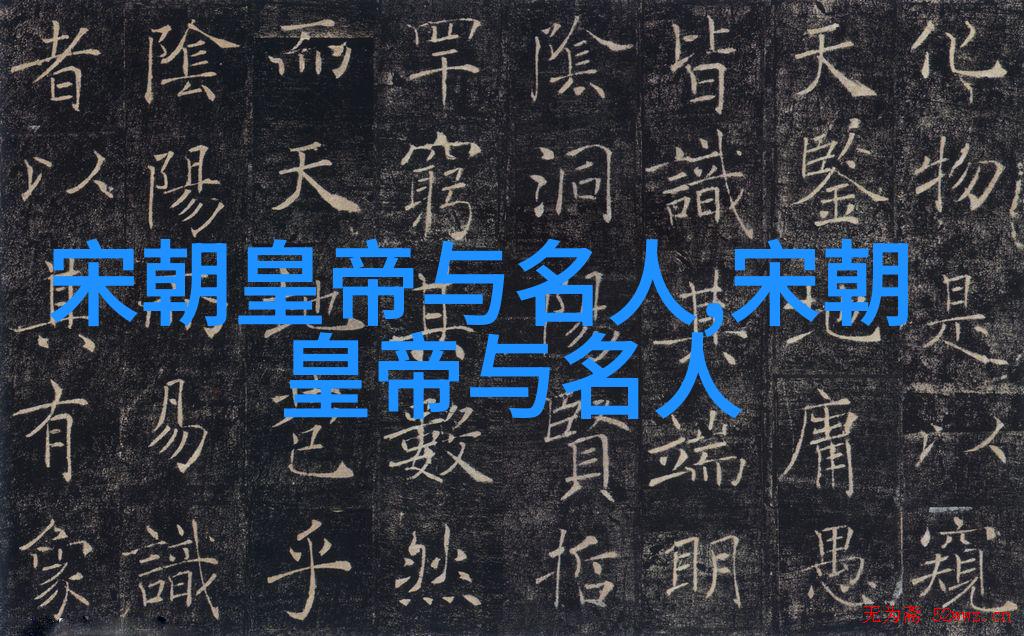 化物是以窺
天鑒庸愚
皆識其端明
陰洞陽賢哲
罕窮其數然
而天地苞乎
陰陽易識
者以其有象
宋朝皇帝与名人,宋朝
皇帝与名人
无为斋 52wwz.cn